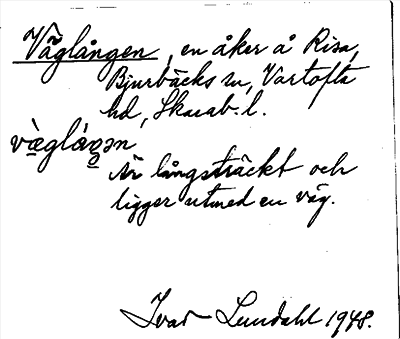 Väglången, en åker å Risa,
Bjurbäcks sn, Vartofta
hd, Skarab. l.
vä̀gláŋən
Är långsträckt och
ligger utmed en väg.
Ivar Lundahl 1948.